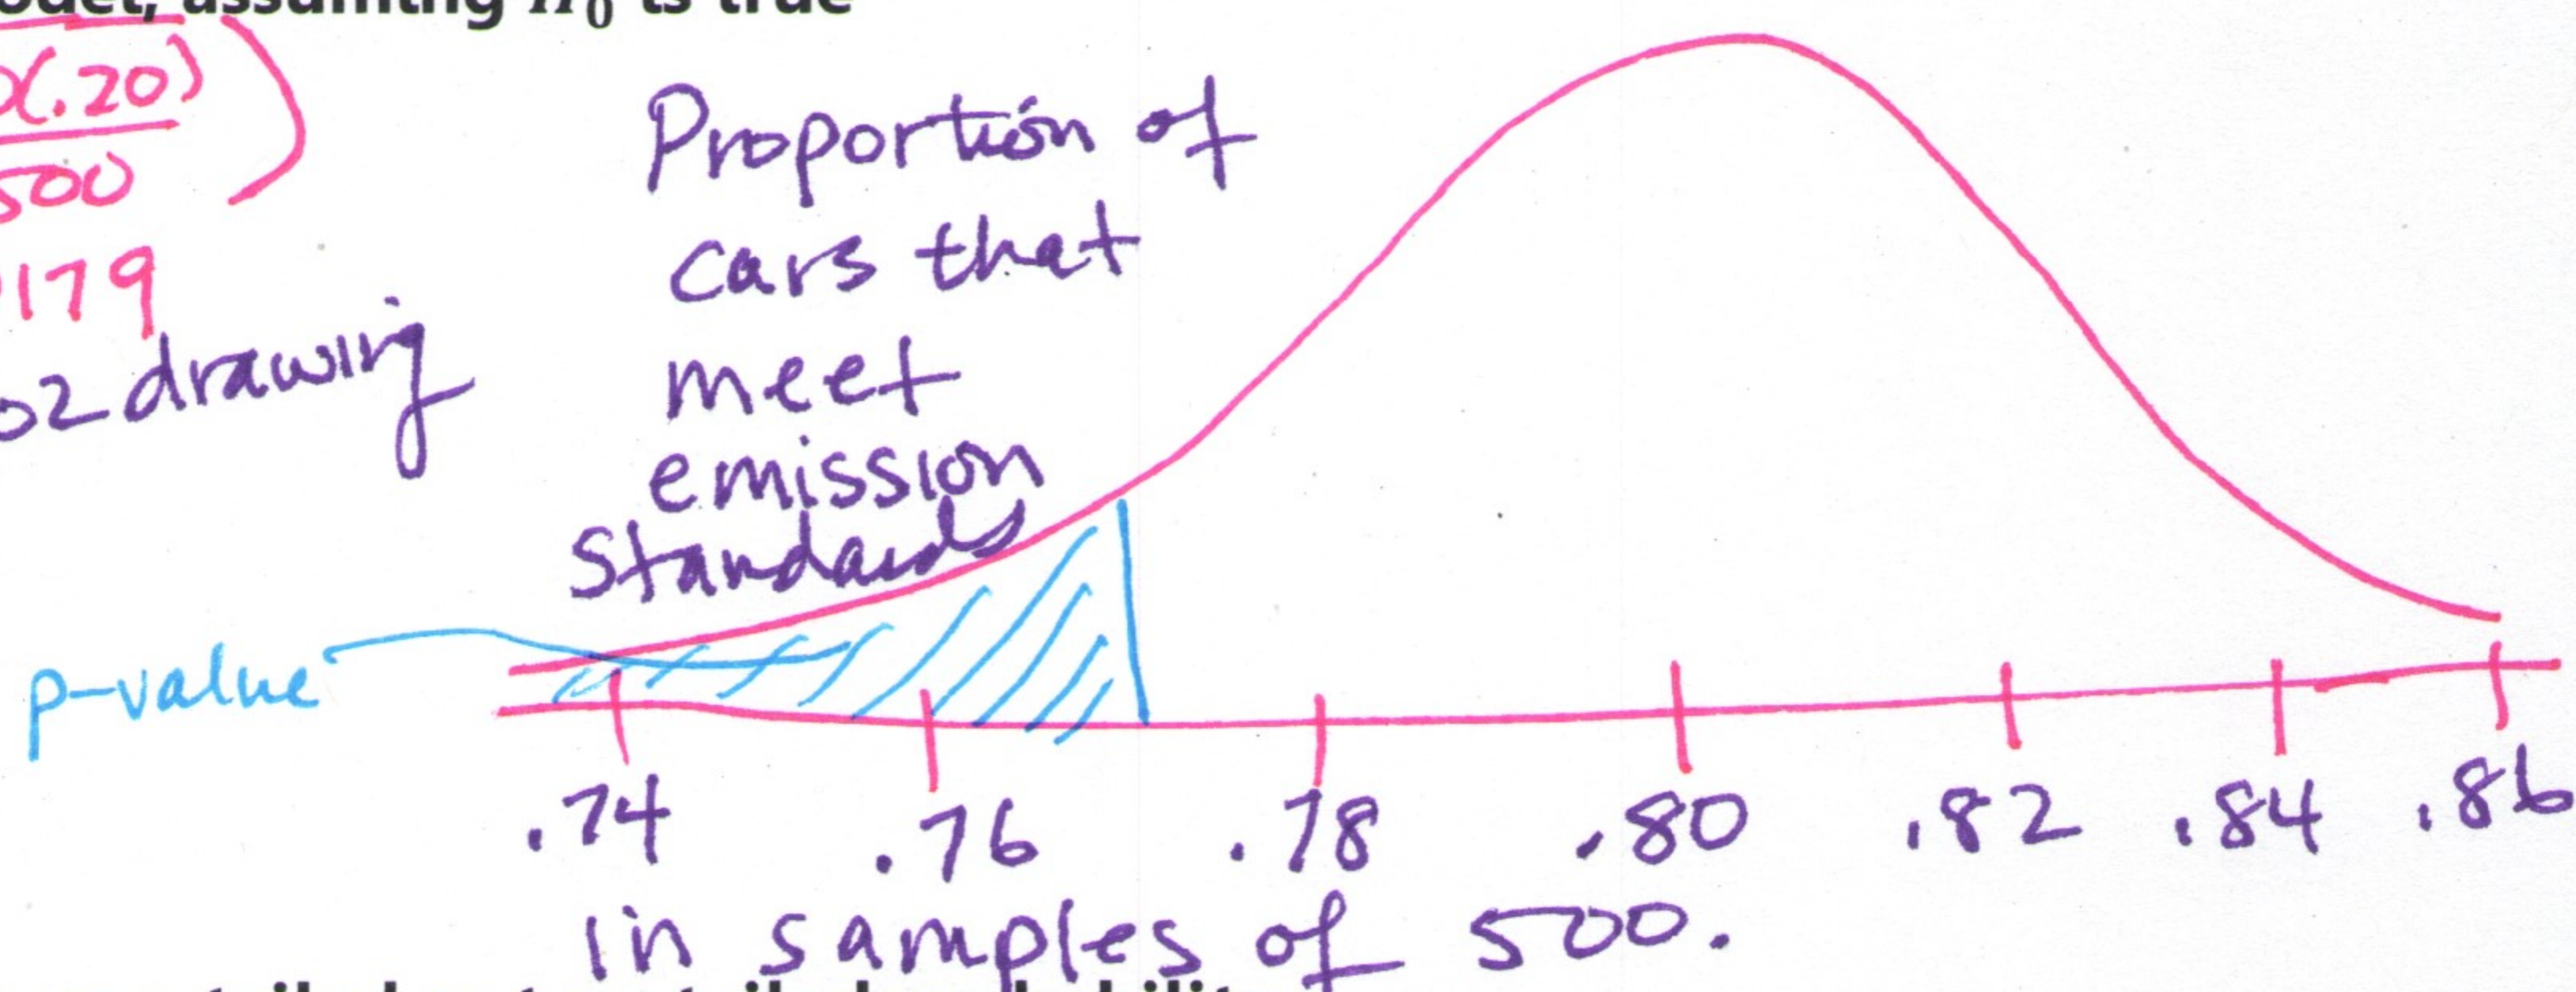 assuming H₀ is true
(.20)
500
179
02 drawing
Proportion of
cars that
meet
emission
standards
p-value
.74 .76 .78 .80 .82 .84 .86
in samples of 500.